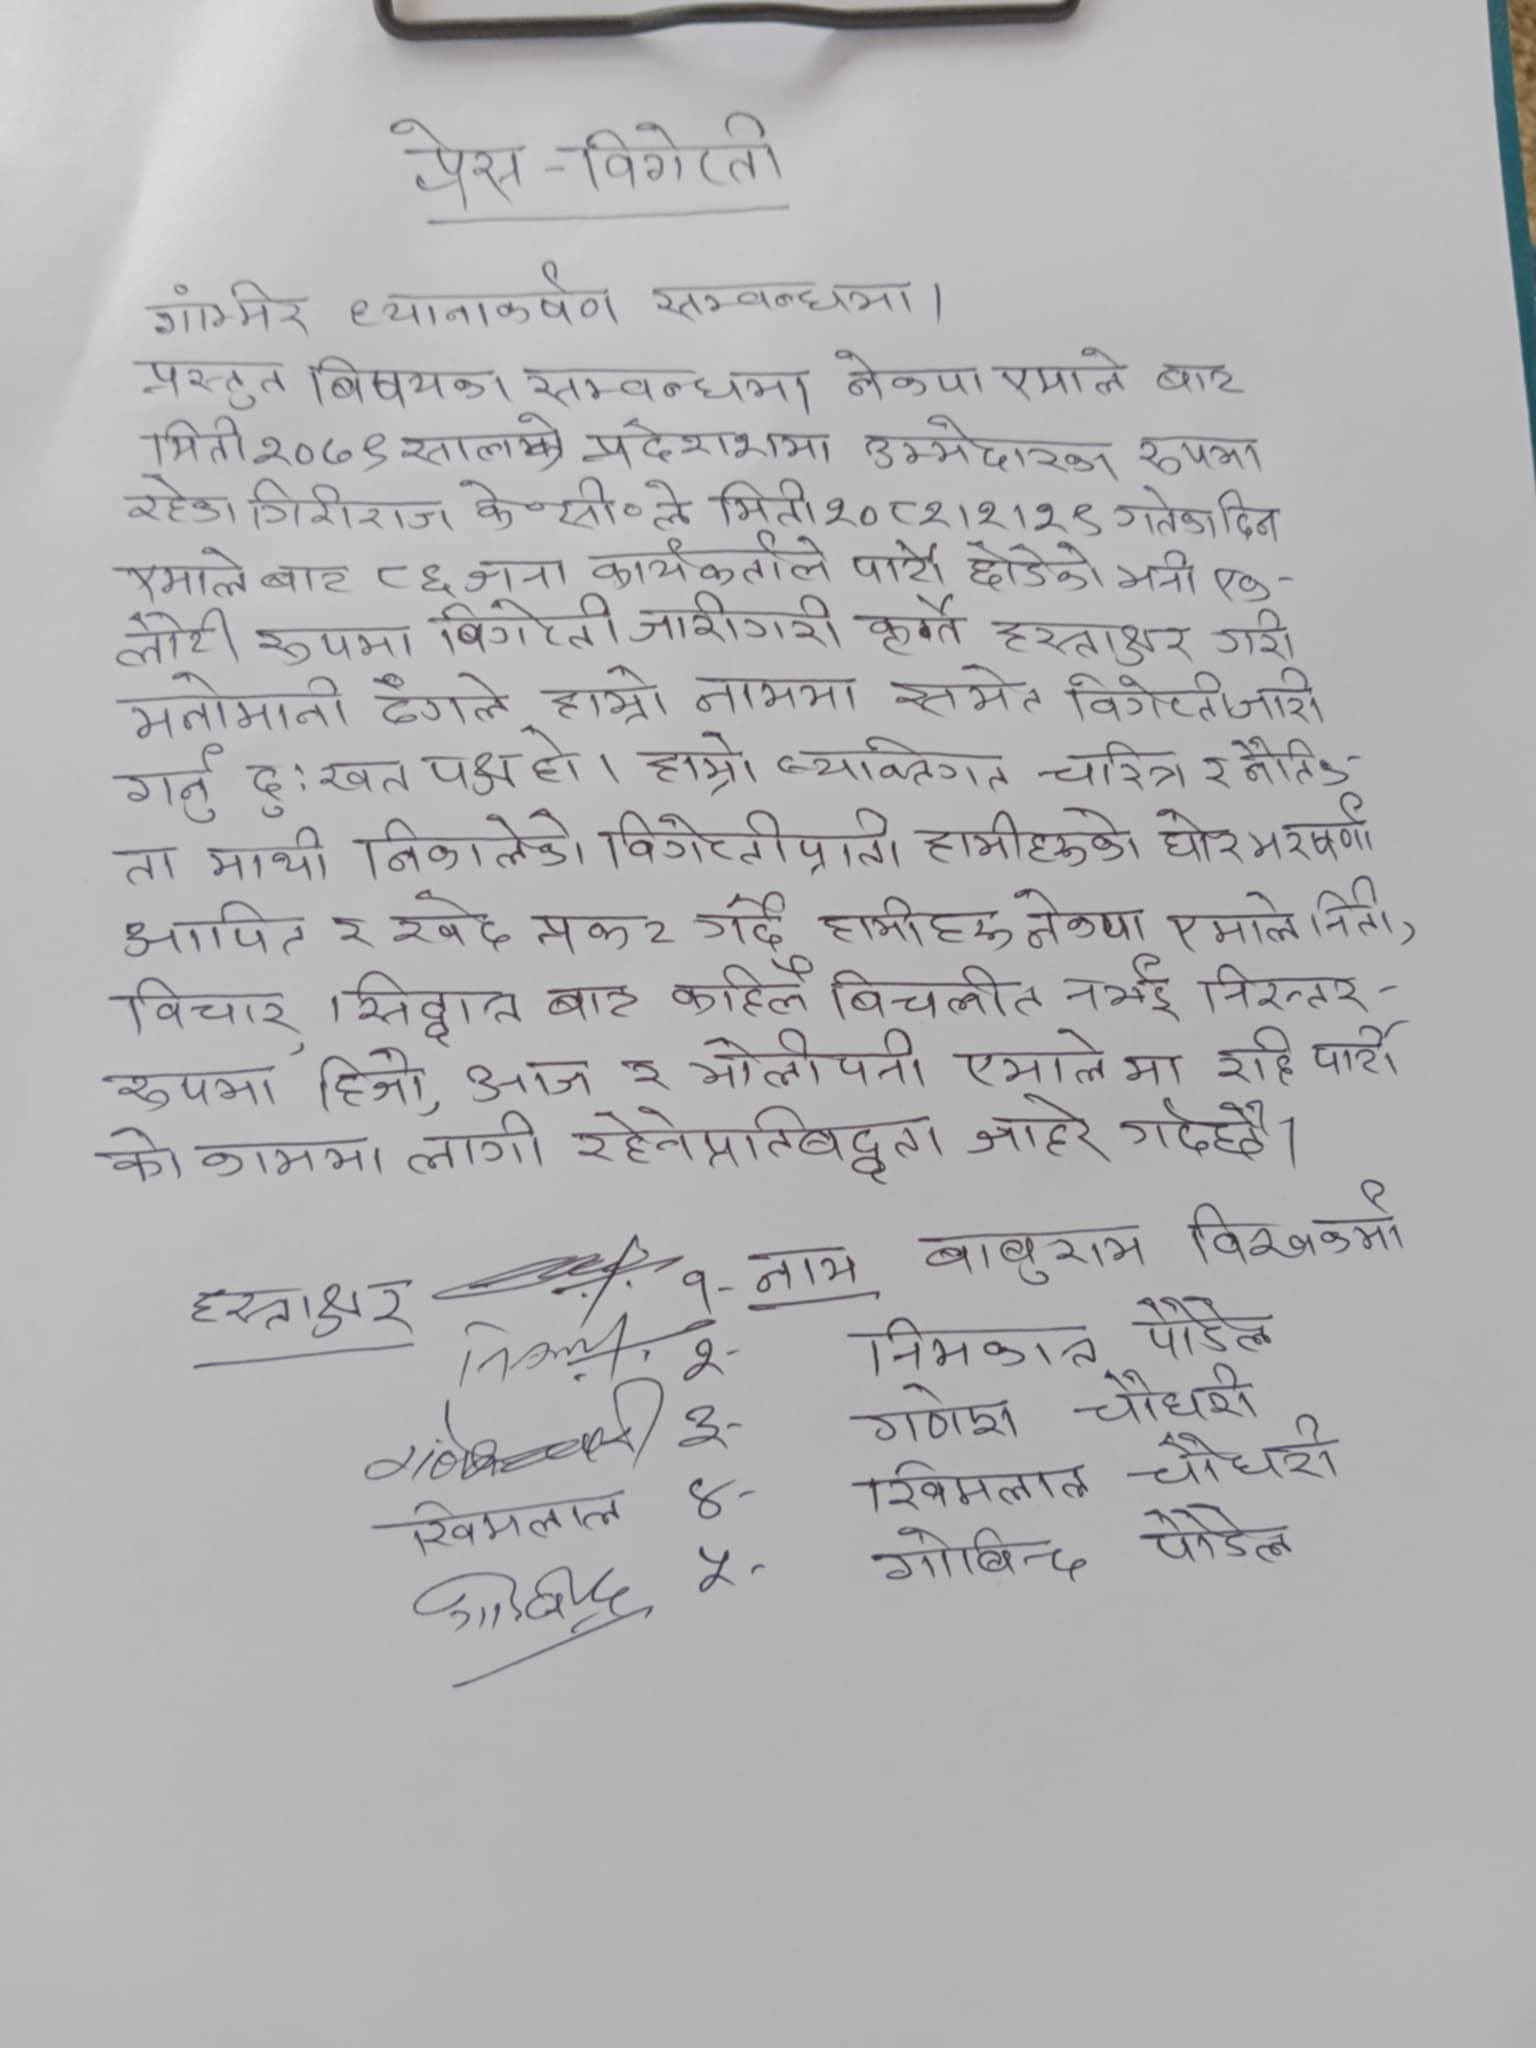 प्रेस - विगेप्ती
गंम्भिर ध्यानाकर्षण सम्वन्धमा।
प्रस्तुत बिषयका सम्वन्धमा नेकपा एमाले बाट
मिती २०७९ सालको प्रदेशशभा उम्मेदारका रुपमा
रहेका गिरीराज के०सी०ले मिती २०८२।२।२९ गतेका दिन
एमाले बाट ८६ जना कार्यकर्ताले पार्टी छोडेको भनी एक-
लौटी रुपमा बिगेप्ती जारीगरी कृर्ते हस्ताक्षर गरी
मनोमानी ढंगले हाम्रो नाममा समेत विगेप्ती जारी
गर्नु दुःखत पक्ष हो। हाम्रो ब्यक्तिगत चरित्र र नैतिक-
ता माथी निकालेको विगेप्तीप्रती हामीहरुको घोर भरषर्णा
आपित र खेद प्रकट गर्दै हामीहरु नेकपा एमाले निती,
विचार, सिद्धान्त बाट कहिलै बिचलीत नभई निरन्तर-
रुपमा हिजो, आज र भोलीपनी एमालेमा रहि पार्टी
को काममा लागी रहेने प्रतिबद्धता जाहेर गर्दछौ।
हस्ताक्षर १- नाम बाबुराम विश्वकर्मा
२- निमकान्त पौडेल
३- गणेश चौधरी
खिमलाल ४- खिमलाल चौधरी
गोबिन्द ५- गोबिन्द पौडेल